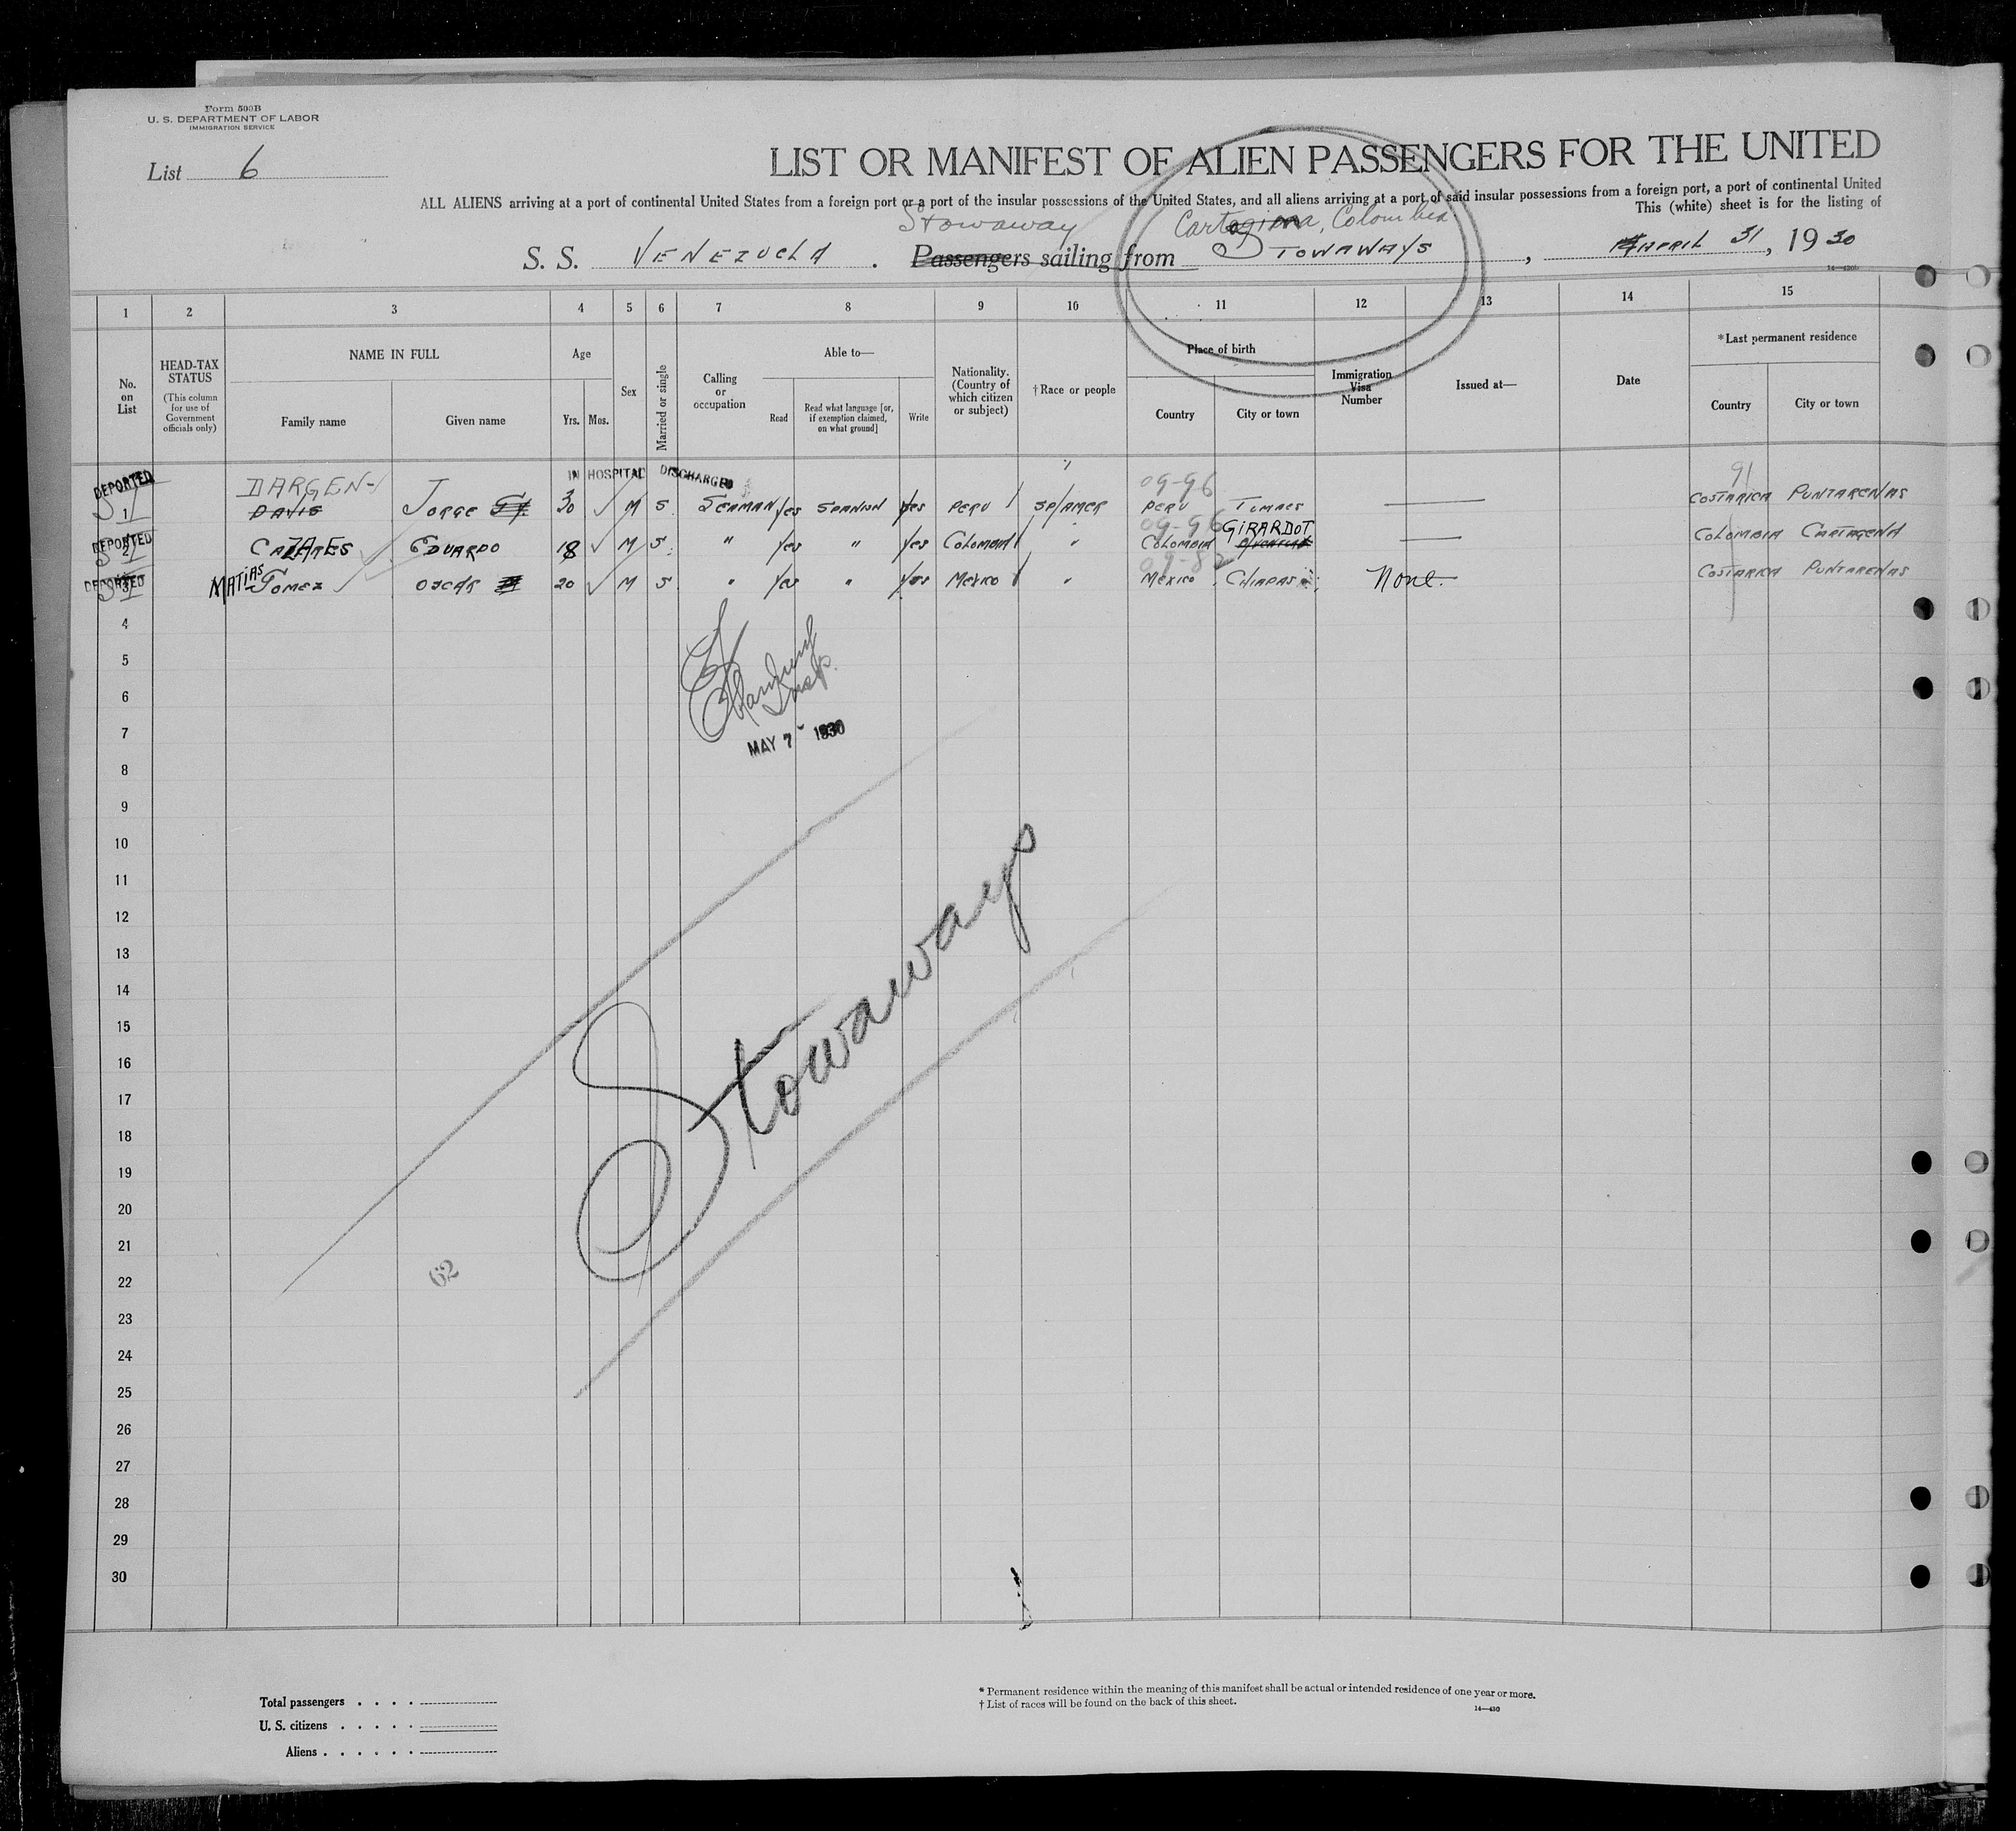 Form 500B
U. S. DEPARTMENT OF LABOR
IMMIGRATION SERVICE
List 6
LIST OR MANIFEST OF ALIEN PASSENGERS FOR THE UNITED
ALL ALIENS arriving at a port of continental United States from a foreign port or a port of the insular possessions of the United States, and all aliens arriving at a port of said insular possessions from a foreign port, a port of continental United
This (white) sheet is for the listing of
Stowaway Cartagena, Colombia
S. S. VENEZUELA . Passengers sailing from STOWAWAYS , APRIL 31 , 19 30
1 2 3 4 5 6 7 8 9 10 11 12 13 14 15
No. on List
HEAD-TAX STATUS
(This column for use of Government officials only)
NAME IN FULL
Family name Given name
Age
Yrs. Mos.
Sex
Married or single
Calling or occupation
Able to—
Read Read what language [or, if exemption claimed, on what ground] Write
Nationality. (Country of which citizen or subject)
†Race or people
Place of birth
Country City or town
Immigration Visa Number
Issued at—
Date
*Last permanent residence
Country City or town
IN HOSPITAL DISCHARGED
DEPORTED DARGEN 09-96 91
1 DAVIS JORGE 30 M S SEAMAN Yes SPANISH Yes PERU SP/AMER PERU COSTARICA PUNTARENAS
DEPORTED 09-96 GIRARDOT
2 CAZARES EDUARDO 18 M S " Yes " Yes COLOMBIA " COLOMBIA COLOMBIA CARTAGENA
DEPORTED 3 MATIAS GOMEZ OSCAR 20 M S " Yes " Yes MEXICO " MEXICO CHIAPAS None COSTARICA PUNTARENAS
4
5
Insp.
6
7
MAY 7 1930
8
9
10
11
12
13
14
15
Stowaways
16
17
18
19
20
21
22
62
23
24
25
26
27
28
29
30
Total passengers . . . .
U. S. citizens . . . . .
Aliens . . . . . .
* Permanent residence within the meaning of this manifest shall be actual or intended residence of one year or more.
† List of races will be found on the back of this sheet.
14—430